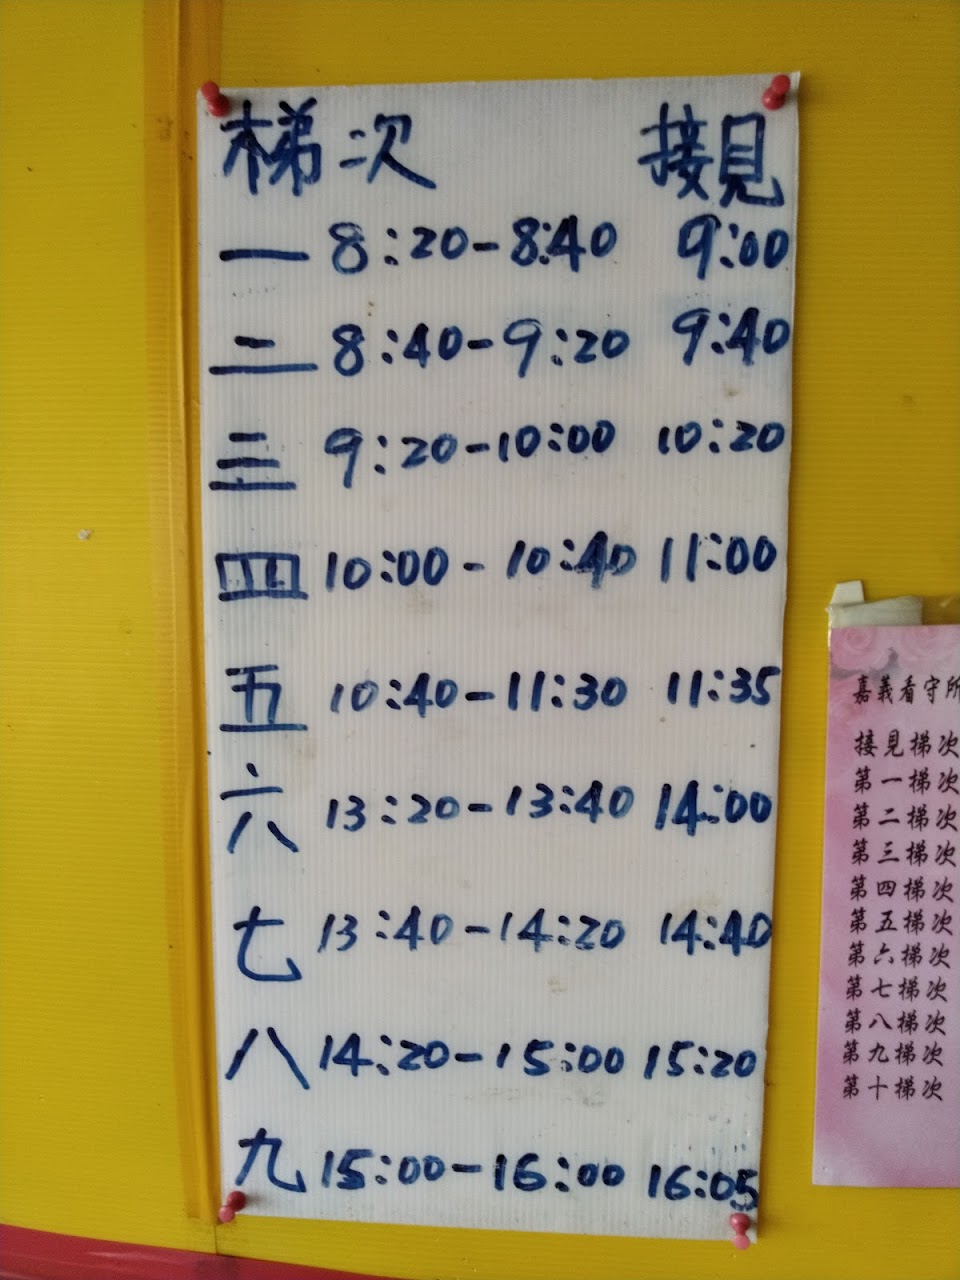 梯次 接見
一 8:20-8:40 9:00
二 8:40-9:20 9:40
三 9:20-10:00 10:20
四 10:00-10:40 11:00
五 10:40-11:30 11:35
六 13:20-13:40 14:00
七 13:40-14:20 14:40
八 14:20-15:00 15:20
九 15:00-16:00 16:05
嘉義看守所
接見梯次
第一梯次
第二梯次
第三梯次
第四梯次
第五梯次
第六梯次
第七梯次
第八梯次
第九梯次
第十梯次